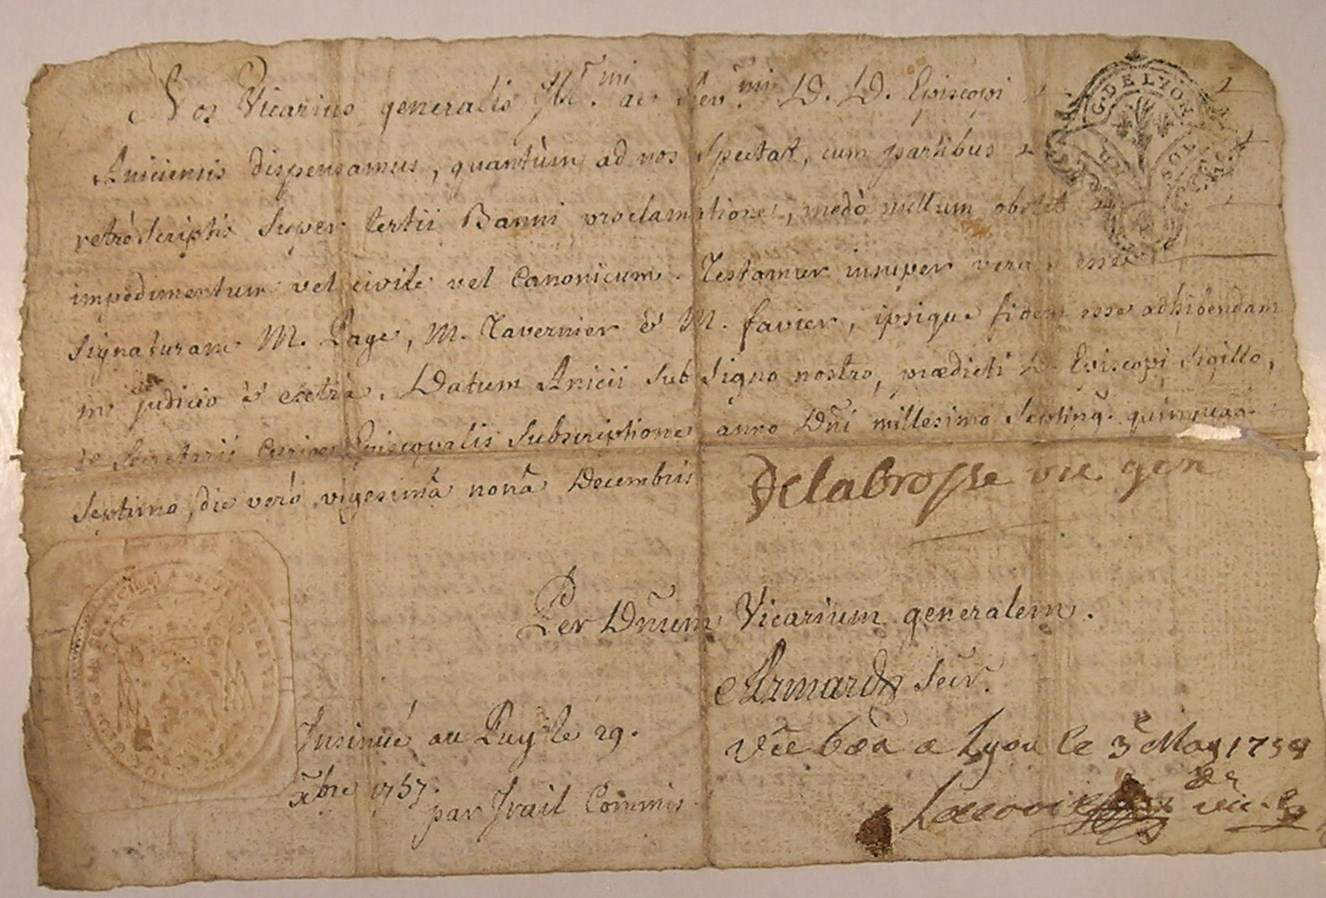 Nos Vicarius generalis Ill.mi ac Rev.mi D. D. Episcopi
Aniciensis dispensamus, quantùm ad nos spectat, cum partibus
retròscriptis super tertii Banni proclamatione, modò nullum obstet
impedimentum vel civile vel Canonicum. Testamur insuper vera esse
signaturam M. Page, M. Tavernier & M. favier, ipsique fidem esse adhibendam
in judicio & extrà. Datum Anicii sub signo nostro, prædicti D. Episcopi Sigillo,
ac Secretarii Curiae Episcopalis subscriptione anno Dñi millesimo septing. quinquag.
septimo, die verò vigesimâ nonâ Decembris
Delabrosse vic gen
Per Dñum Vicarium generalem.
Armand Secr.
Insinué au Puy le 29.
xbre 1757.
par Irail Commis
a Lyon le 3e May 1758
vic.
G. DE LYON
SOL